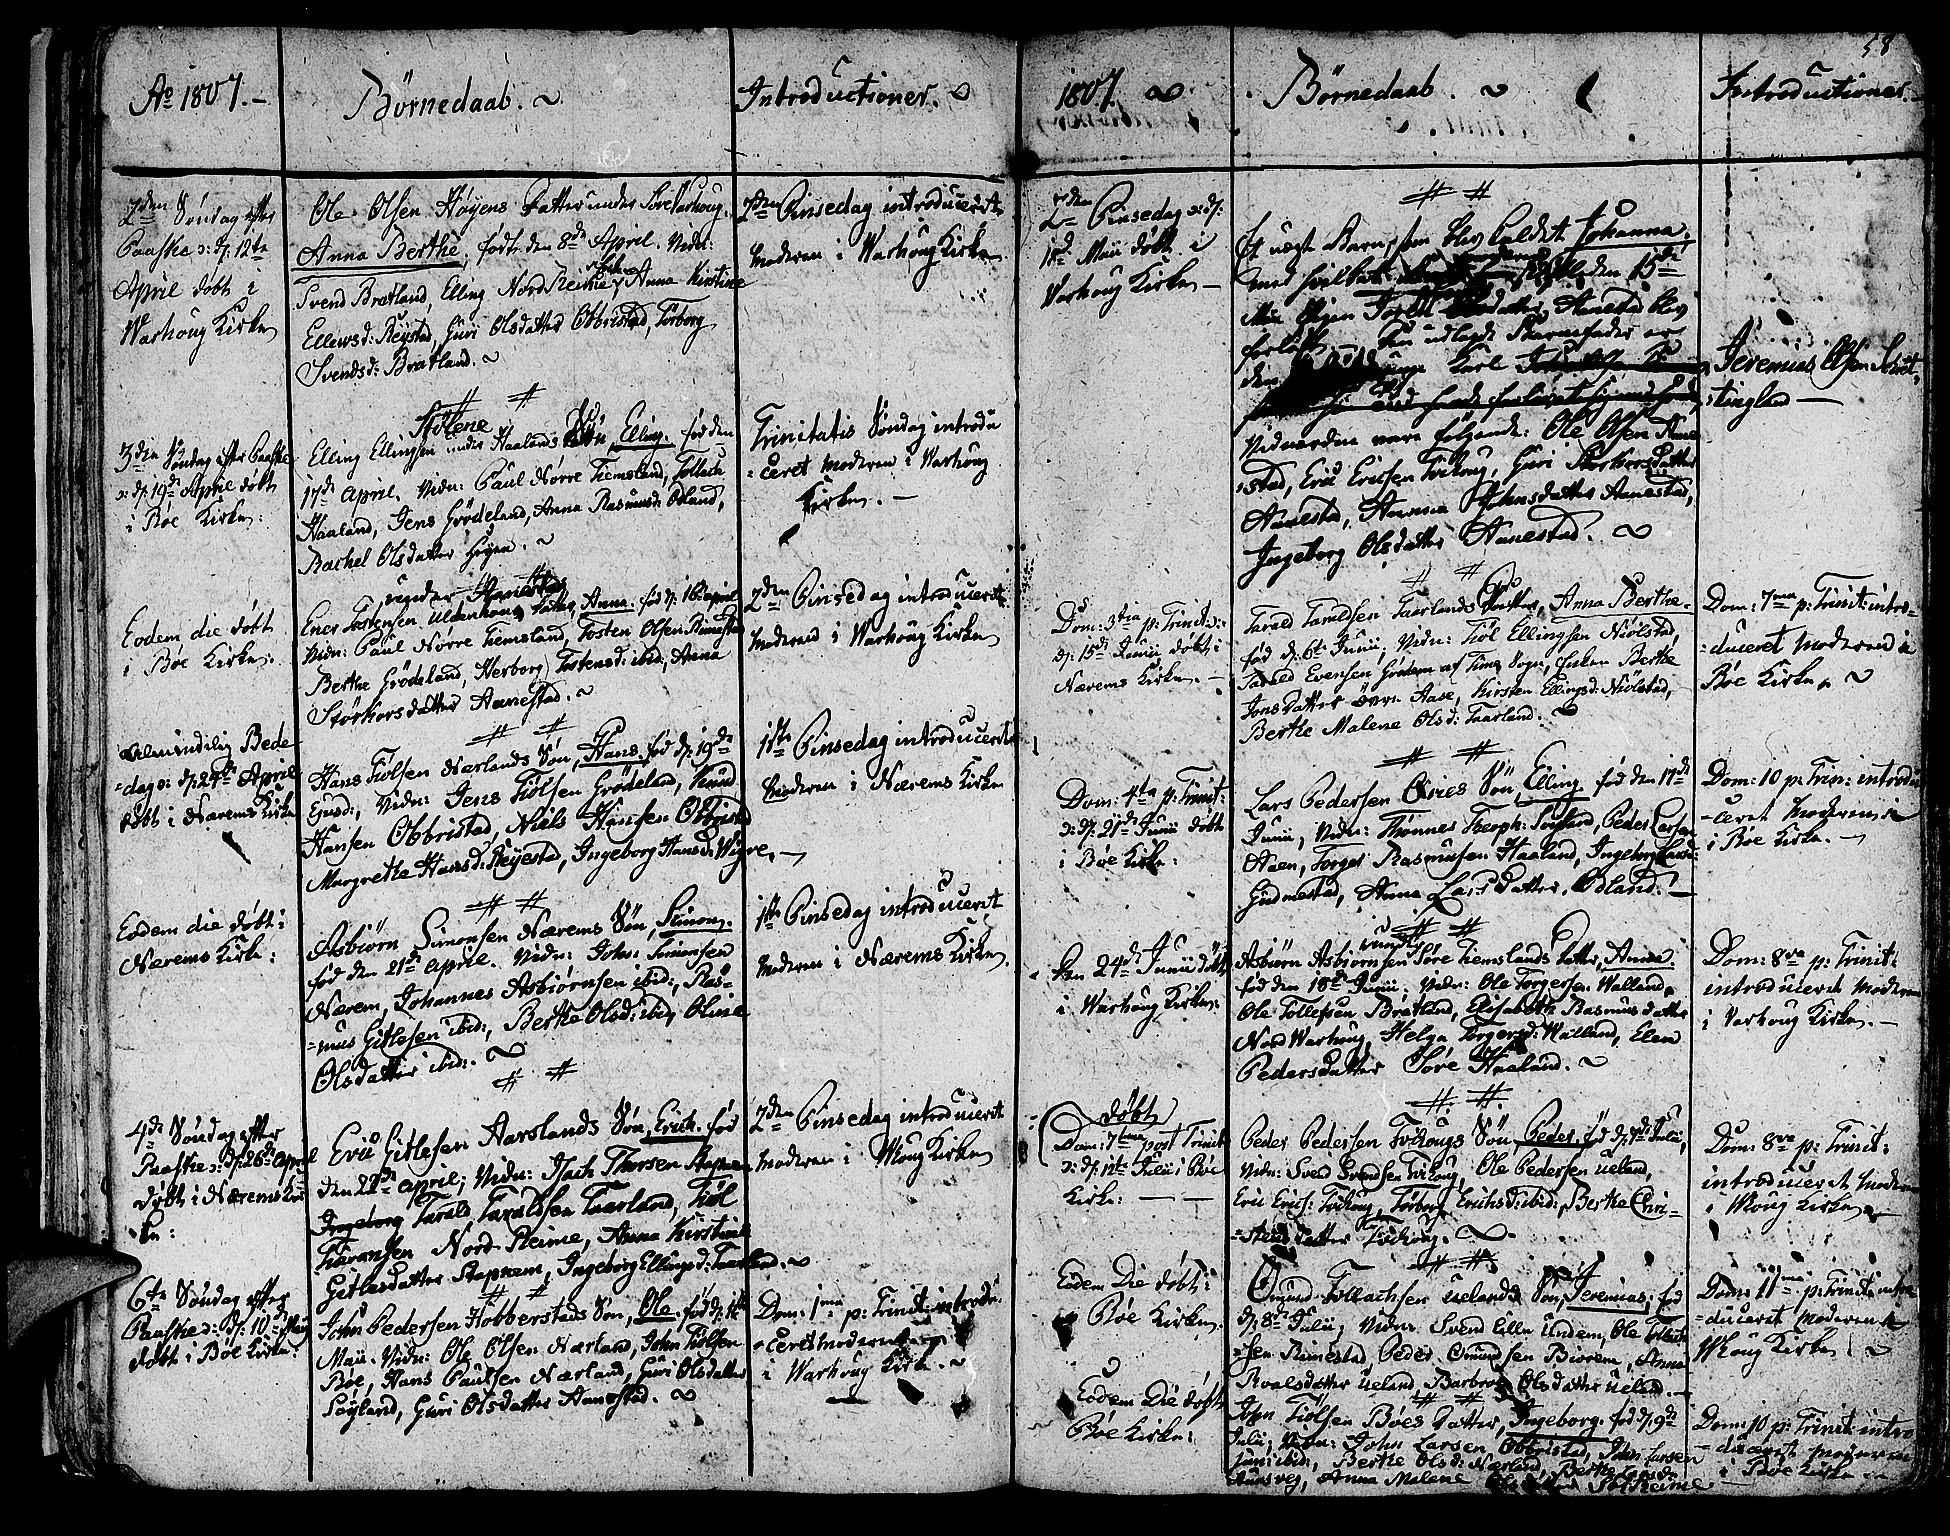 Ao 1807. –
Børnedaab. ~
Introductioner. ~
2den Søndag efter
Paaske ɔ: d: 12te
April døbt i
Warhoug Kirke
Ole Olsen Høyens Datter under Søre Varhoug,
Anna Berthe, født den 8de April. Vidn:
Svend Bratland, Elling Nord Reime, Anna Kirstine
Ellewsd: Reystad, Guri Olsdatter Obbristad, Torborg
Svendsd: Bratland. ~
2den Pinsedag introduceret
Moderen i Warhoug Kirke
3den Søndag efter Paaske
ɔ: d: 19de April døbt
i Bøe Kirke:
Stølene
Elling Ellingsen under Haalands Søn, Elling. fød den
17de April. Vidn: Paul Nørre Tiemsland, Tollach
Haaland, Jens Grødeland, Anna Rasmusd: Ødland,
Rachel Olsdatter Høyen. ~
Trinitatis Søndag introdu
=ceret Moderen i Warhoug
Kirke. –
Eodem die døbt
i Bøe Kirke:
under Haanestad
Ener Tostensen Datter, Anna. fød d: 16de April
Vidn: Paul Nørre Tiemsland, Tosten Olsen Rimestad
Berthe Grødeland, Herborg Tostensd: ibid:, Anna
Størkorsdatter Aanestad. ~
2den Pinsedag introduceret
Moderen i Warhoug Kirke
Almindelig Bede
=dag ɔ: d: 24de April
døbt i Nærems Kirke
Hans Tiølsen Nærlands Søn, Hans. fød d: 19de
Ejusd:, Vidn: Jens Tiølsen Grødeland, Knud
Hansen Obbristad, Niels Hansen Obbristad
Margrethe Hansd: Reyestad, Ingeborg Hansd: Wigre. –
1ste Pinsedag introduceret
Moderen i Nærems Kirke
Eodem die døbt i
Nærems Kirke:
Asbiørn Simonsen Nærems Søn, Simon.
fød den 21de April. Vidn: John Simonsen
Nærem, Johannes Asbiørnsen ibid:, Ras-
=mus Gitlesen ibid:, Berthe Olsd: ibid, Oline
Olsdatter ibid:. ~
1ste Pinsedag introduceret
Moderen i Nærems Kirke.
4de Søndag efter
Paaske ɔ: d: 26de April
døbt i Nærems Kir
ke:
Eric Gitlesen Aarslands Søn, Erich. fød
den 22de April; Vidn: Thorsen Stapnem
Tarald Taraldsen Taarland, Tiøl
Nord Reime, Anna Kirstine
Gitlesdatter Stapnem, Ingeborg Ellingsd: Taarland. ~
2den Pinsedag introduceret
Moderen i Woug Kirke
6te Søndag efter
Paaske ɔ: d: 10de Maii
døbt i Bøe Kirke:
John Pedersen Hobberstads Søn, Ole. fød d: 1ste
Maii. Vidn: Ole Olsen Nærland, John Tiølsen
Bøe, Hans Paulsen Nærland, Guri Olsdatter
Søyland, Guri Olsdatter Aanestad. ~
Dom: 1ma p: Trinit: introdu
=ceret Moderen
i Warhoug Kirke. ~
58
1807. ~
Børnedaab. ~
Introductioner. –
2den Pinsedag ɔ: d:
18de Maii døbt i
Warhoug Kirke –
Et uægt Barn, som blev kaldet Johanna,
med hvilket den 15de
Maii Pigen Aanestad blev
forløst. Den udlagde Barnefader er
den unge Karl
Vidnerne vare følgende: Ole Olsen Aane
=stad, Eric Ericsen Tvihoug, Guri Størkorsdatter
Aanestad, Anna Johnsdatter Aanestad,
Ingeborg Olsdatter Aanestad. ~
Jeremias Olsen
=tingland –
Dom: 3tia p: Trinit:
d: 15de Junii døbt i
Nærems Kirke. –
Tarald Taraldsen Taarlands Datter, Anna Berthe.
fød d: 6te Junii; Vidn: Tiøl Ellingsen Niølstad,
Tarald Evensen Grødem af Time Sogn, Enken Berthe
Jonsdatter Aase, Kirsten Ellingsd: Niølstad,
Berthe Malene Olsd: Taarland. ~
Dom: 7ma p: Trinit: intro-
=duceret Moderen i
Bøe Kirke. ~
Dom: 4ta p: Trinit:
ɔ: d: 21de Junii døbt
i Bøe Kirke:
Lars Pedersen Qvies Søn, Elling fød den 17de
Junii; Vidn: Thønnes Peder Larsen
Torger Rasmusen Haaland, Ingeborg Larsd:
Gudmestad, Anna Larsdatter Ødland. –
Dom: 10 p: Trin: introdu
=ceret Moderen i
i Bøe Kirke. –
Den 24de Junii døbt
i Warhoug Kirke:
Asbiørn Asbiørnsen Søre Tiemslands Datter, Anna.
fød den 18de Junii. Vidn: Ole Torgersen Walland,
Ole Tollefsen Bratland, Elisabeth Rasmusdatter
Nord Warhoug, Helga Torgersd: Walland, Elen
Pedersdatter Søre Haaland. ~
Dom: 8va p: Trinit:
introduceret Moderen
i Varhoug Kirke. –
døbt
Dom: 7tma post Trinit
ɔ: d: 12te Julii i Bøe
Kirke: – –
Peder Pedersen Tvihougs Søn Peder. fød d: 7de Julii,
Vidn: Svend Svendsen Tvihoug, Ole Pedersen Ueland,
Eric Erics: Tvihoug, Torborg Erichsd: ibid:, Berthe Chri-
=stensdatter Tvihoug. ~
Dom: 8va p: Trinit:
introduceret Moderen
i Woug Kirke
Eodem Die døbt i
Bøe Kirke.
Omund Tollachsen Uelands Søn, Jeremias, fød
d: 8de Julii; Vidn: Svend Undem, Ole Tollach
=sen Rimestad, Peder Omundsen Biorem, Anna
Roalsdatter Ueland, Barbroe Olsdatter Ueland. –
Dom: 11ma p: Trinit: intro
=duceret Moderen i
Woug Kirke ~
Eodem Die døbt
Bøe Kirke:
John Tiølsen Bøes Datter, Ingeborg. fød d: 9de
Julii; Vidn: John Larsen Obbristad, John Larsen
Jun: ibid:, Berthe Olsd: Nærland, Berthe
Aunsvej, Anna Malene
Dom: 10 p: Trinit: intro
=duceret Moderen
i Bøe Kirke –